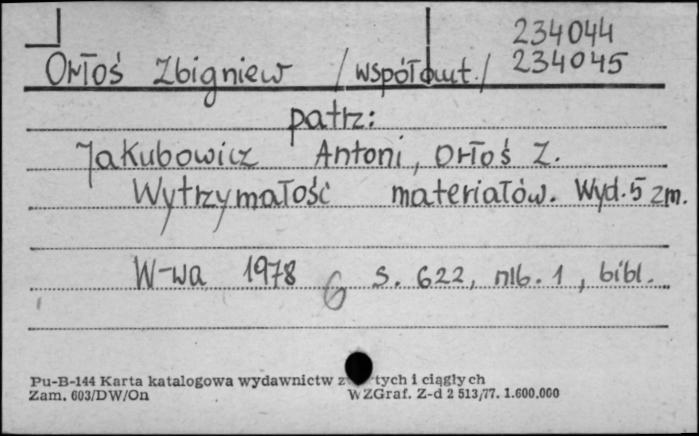 234044
Orłoś Zbigniew /współaut./ 234045
patrz:
Jakubowicz Antoni, Orłoś Z.
Wytrzymałość materiałów. Wyd. 5 zm.
W-wa 1978 6 s. 622, nlb. 1, bibl.
Pu-B-144 Karta katalogowa wydawnictw z tych i ciągłych
Zam. 603/DW/On WZGraf. Z-d 2 513/77. 1.600.000